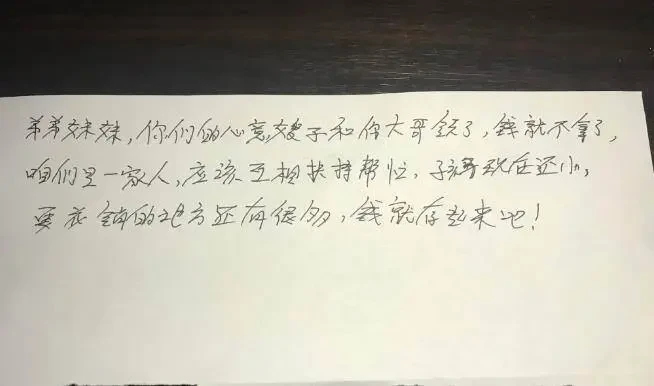 弟弟妹妹，你们的心意嫂子和你大哥领了，钱就不拿了，
咱们是一家人，应该互相扶持帮忙，孩子现在还小，
要花销的地方还有很多，钱就存起来吧！